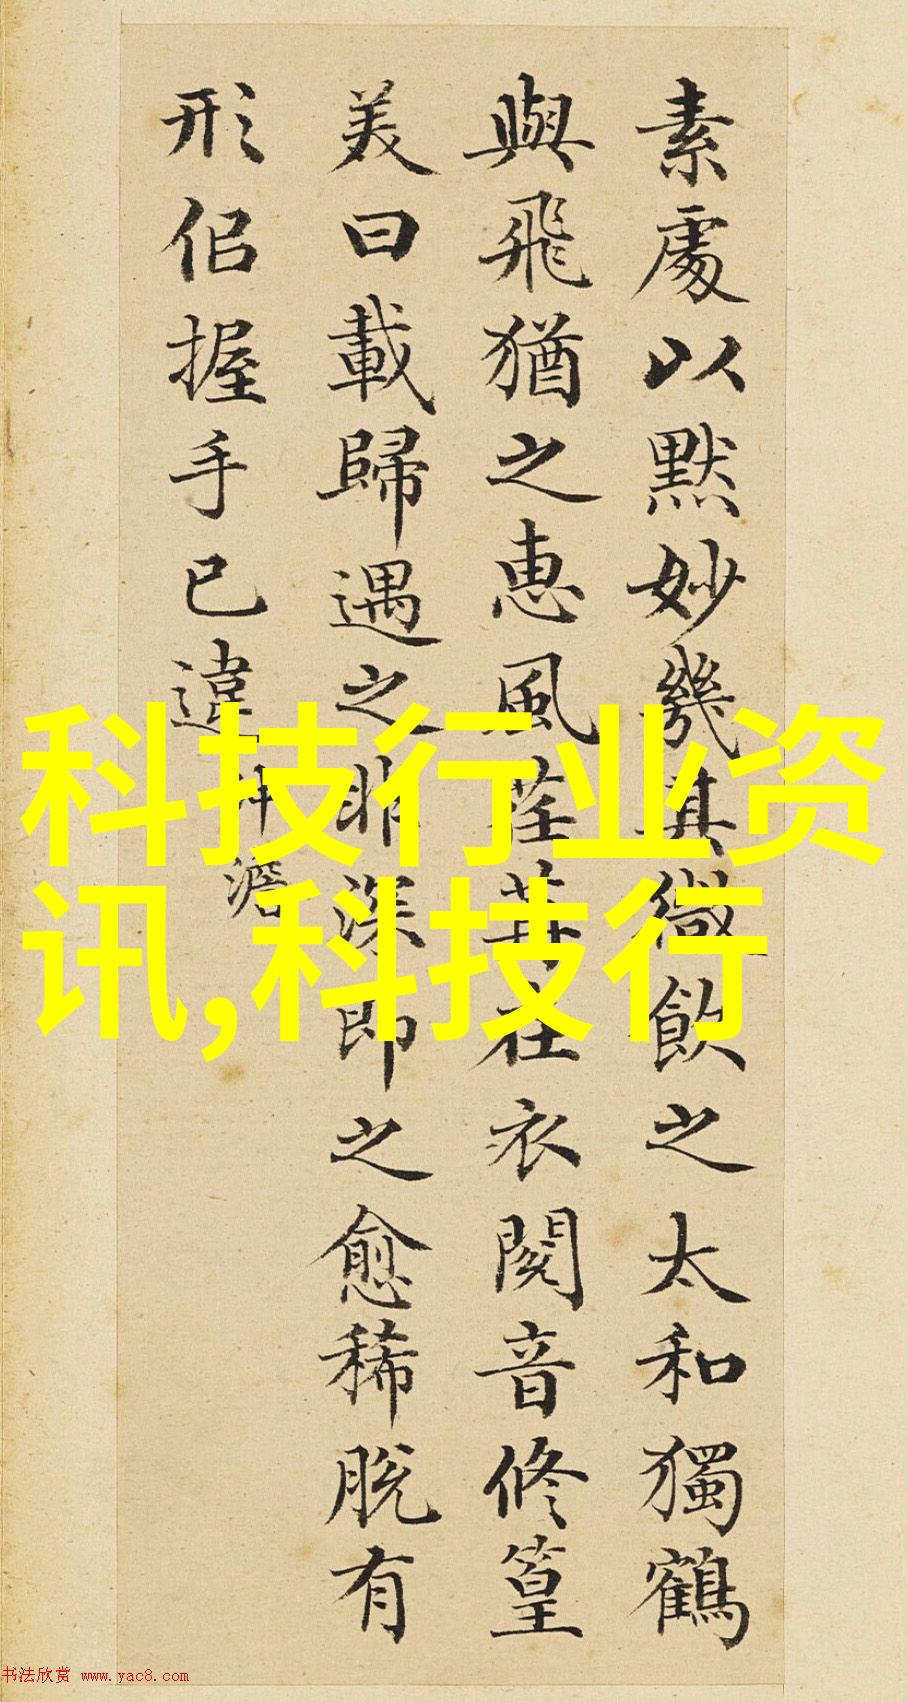 素處以默妙幾其微飲之太和獨鶴
與飛猶之惠風荏苒在衣閱音修篁
美曰載歸遇之匪深即之愈稀脫有
形侣握手已違 冲澹
科技行业资
讯,科技行
书法欣赏 www.yac8.com